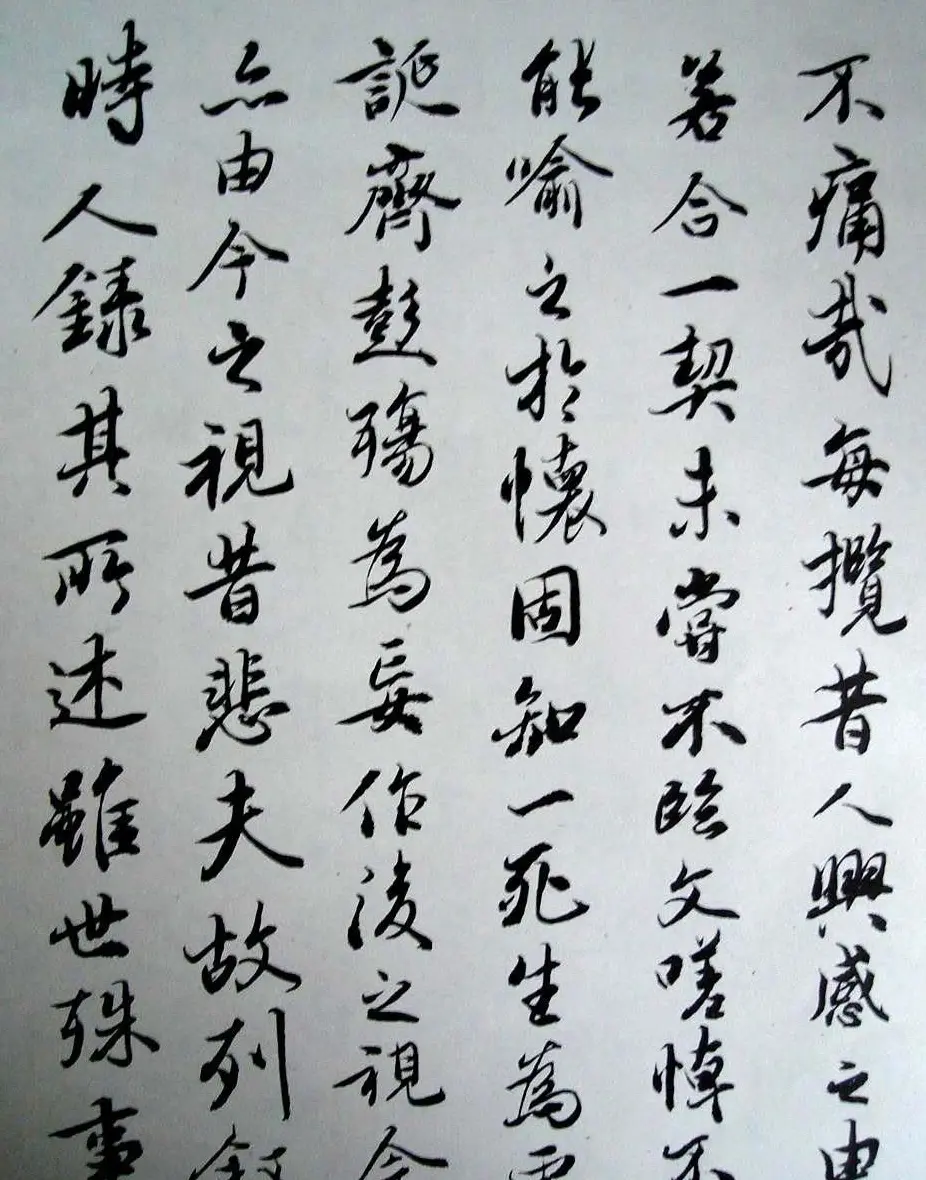 不痛哉每攬昔人興感之由
若合一契未嘗不臨文嗟悼不
能喻之於懷固知一死生為虛
誕齊彭殤為妄作後之視今
亦由今之視昔悲夫故列敘
時人錄其所述雖世殊事